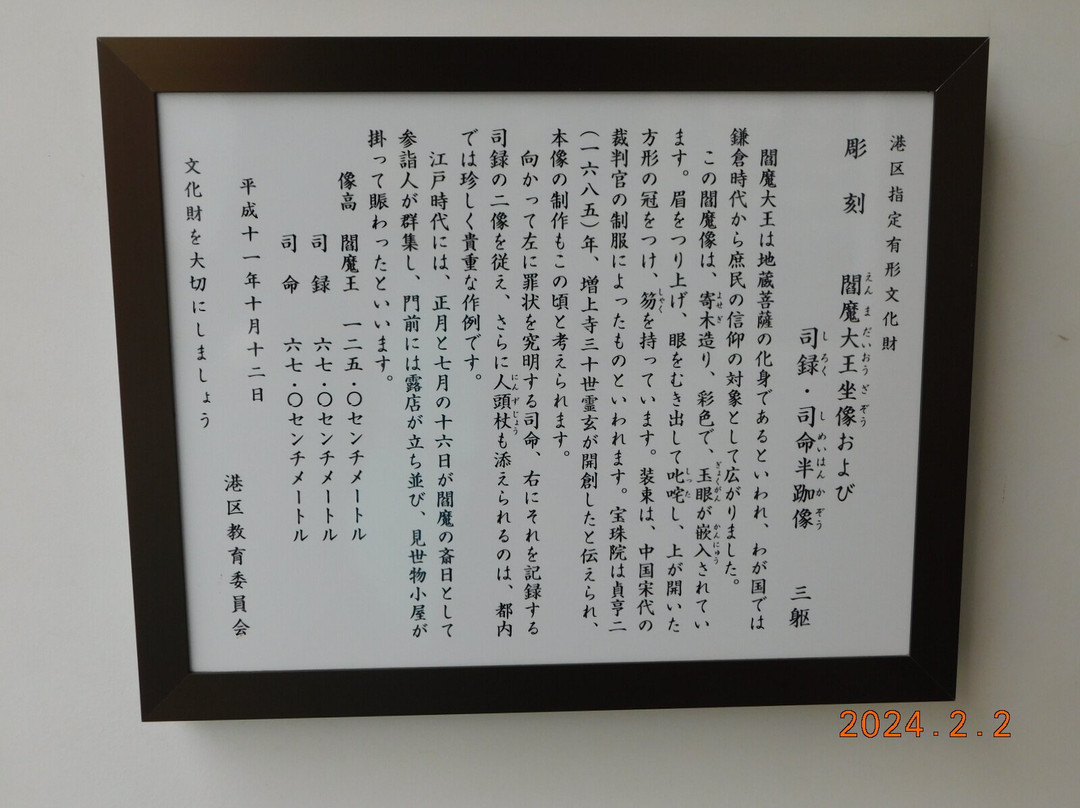 港区指定有形文化財
彫刻 閻魔大王坐像および
えんまだいおうざぞう
司録・司命半跏像 三躯
しろく しめいはんかぞう
閻魔大王は地蔵菩薩の化身であるといわれ、わが国では
鎌倉時代から庶民の信仰の対象として広がりました。
この閻魔像は、寄木造り、彩色で、玉眼が嵌入されてい
よせぎ ぎょくがん かんにゅう
ます。眉をつり上げ、眼をむき出して叱咤し、上が開いた
しった
方形の冠をつけ、笏を持っています。装束は、中国宋代の
しゃく
裁判官の制服によったものといわれます。宝珠院は貞享二
(一六八五)年、増上寺三十世霊玄が開創したと伝えられ、
本像の制作もこの頃と考えられます。
向かって左に罪状を究明する司命、右にそれを記録する
司録の二像を従え、さらに人頭杖も添えられるのは、都内
にんずじょう
では珍しく貴重な作例です。
江戸時代には、正月と七月の十六日が閻魔の斎日として
参詣人が群集し、門前には露店が立ち並び、見世物小屋が
掛って賑わったといいます。
像高 閻魔王 一二五・〇センチメートル
司録 六七・〇センチメートル
司命 六七・〇センチメートル
平成十一年十月十二日
港区教育委員会
文化財を大切にしましょう
2024.2.2